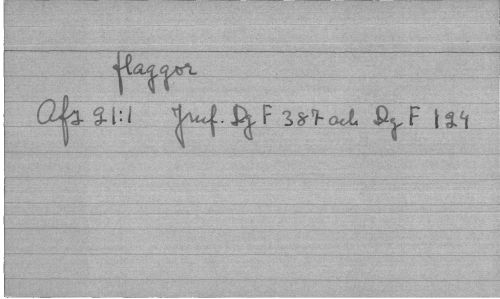 flaggor
Afz 91:1 Jmf. Dg F 387 och Dg F 194